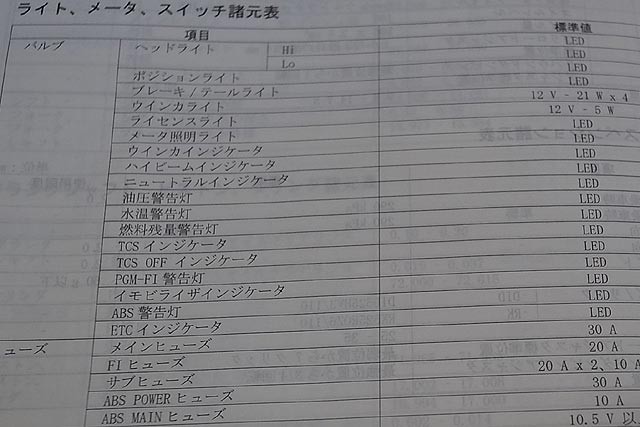 ライト、メータ、スイッチ諸元表
項目 標準値
バルブ ヘッドライト Hi LED
Lo LED
ポジションライト LED
ブレーキ/テールライト LED
ウインカライト 12 V - 21 W x 4
ライセンスライト 12 V - 5 W
メータ照明ライト LED
ウインカインジケータ LED
ハイビームインジケータ LED
ニュートラルインジケータ LED
油圧警告灯 LED
水温警告灯 LED
燃料残量警告灯 LED
TCS インジケータ LED
TCS OFF インジケータ LED
PGM-FI 警告灯 LED
イモビライザインジケータ LED
ABS 警告灯 LED
ETC インジケータ LED
ューズ メインヒューズ 30 A
FI ヒューズ 20 A
サブヒューズ 20 A x 2、10 A
ABS POWER ヒューズ 30 A
ABS MAIN ヒューズ 10 A
10.5 V 以